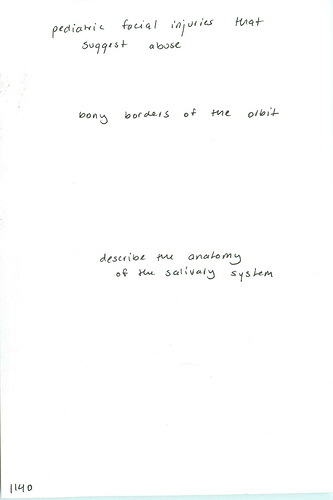 pediatric facial injuries that
suggest abuse
bony borders of the orbit
describe the anatomy
of the salivary system
1140